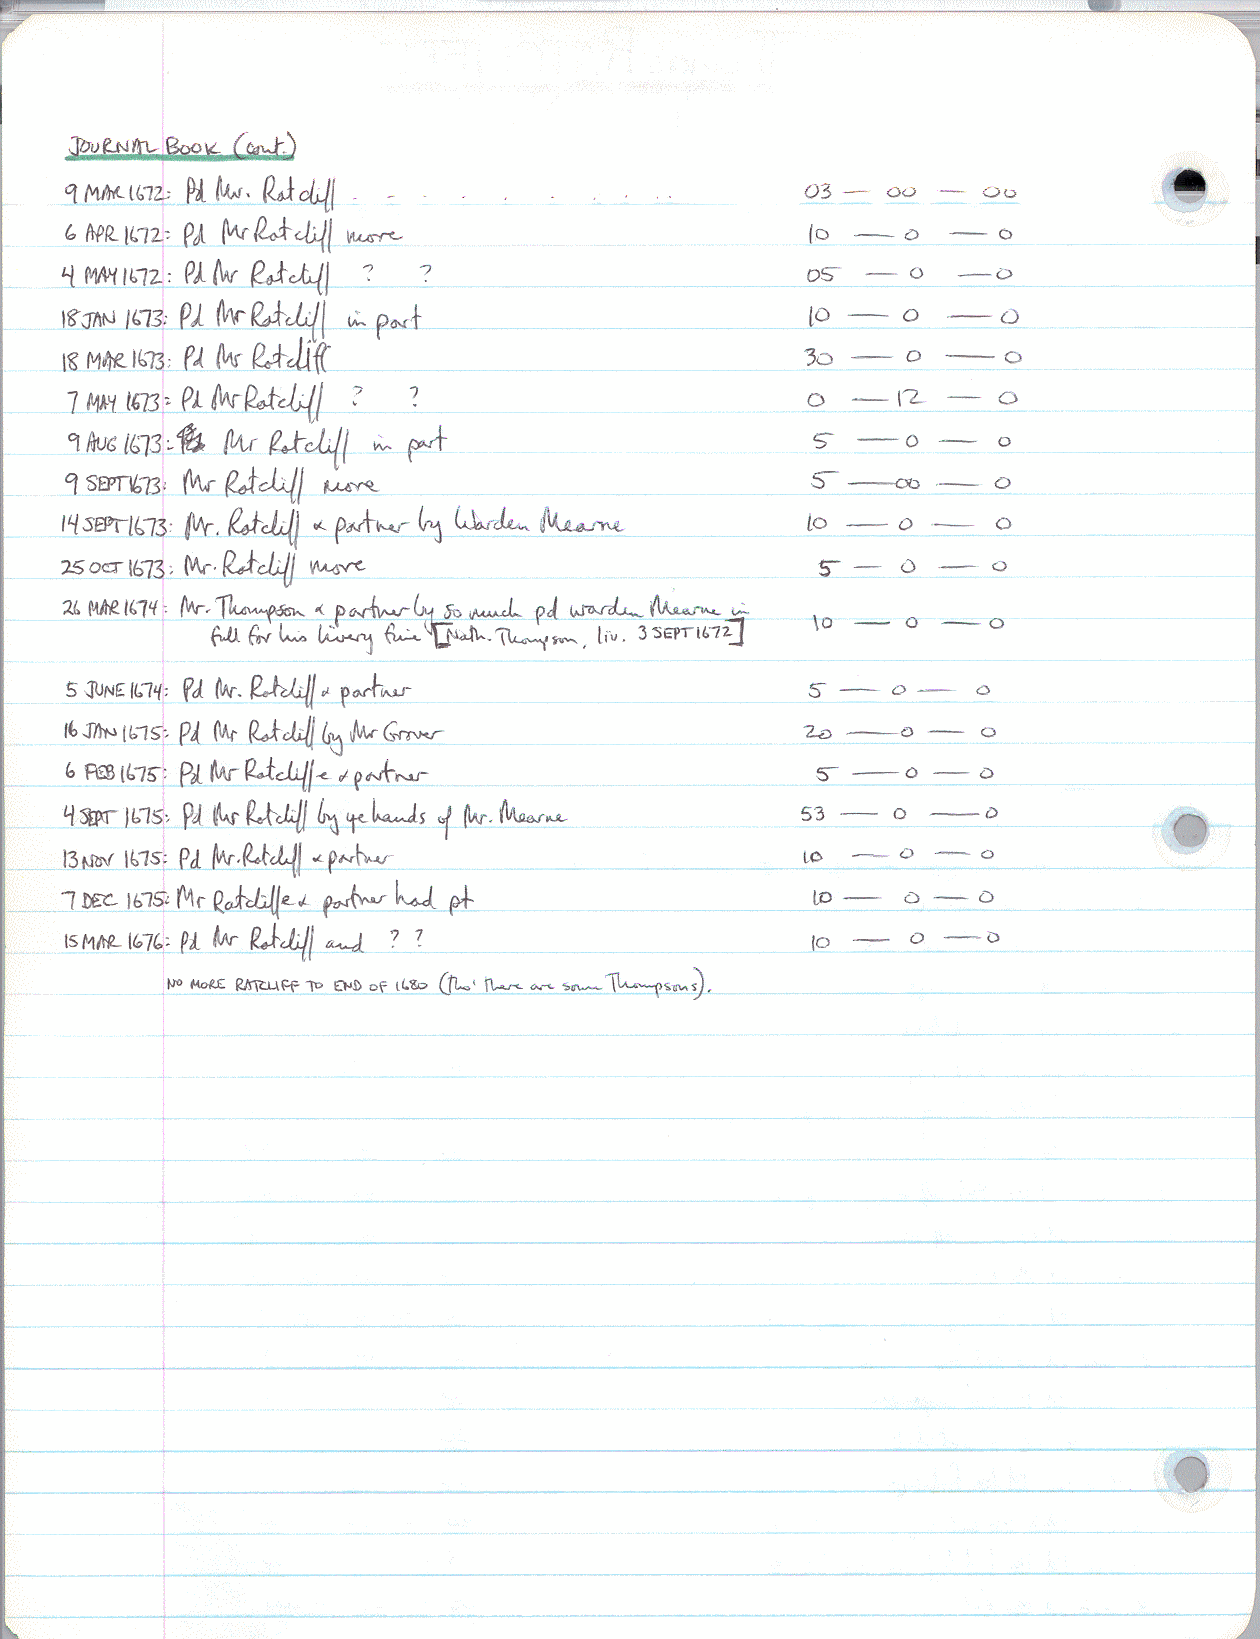 JOURNAL BOOK (cont.)
9 MAR 1672: Pd Mr. Ratcliff - - - . . . . . . . 03 — 00 — 00
6 APR 1672: Pd Mr Ratcliff more 10 — 0 — 0
4 MAY 1672: Pd Mr Ratcliff ? ? 05 — 0 — 0
18 JAN 1673: Pd Mr Ratcliff in part 10 — 0 — 0
18 MAR 1673: Pd Mr Ratcliff 30 — 0 — 0
7 MAY 1673: Pd Mr Ratcliff ? ? 0 — 12 — 0
9 AUG 1673: Mr Ratcliff in part 5 — 0 — 0
9 SEPT 1673: Mr Ratcliff more 5 — 00 — 0
14 SEPT 1673: Mr. Ratcliff & partner by Warden Mearne 10 — 0 — 0
25 OCT 1673: Mr. Ratcliff more 5 — 0 — 0
26 MAR 1674: Mr. Thompson & partner by so much pd warden Mearne in
full for his livery fine [Nath. Thompson, liv. 3 SEPT 1672] 10 — 0 — 0
5 JUNE 1674: Pd Mr. Ratcliff & partner 5 — 0 — 0
16 JAN 1675: Pd Mr Ratcliff by Mr Grover 20 — 0 — 0
6 FEB 1675: Pd Mr Ratcliffe & partner 5 — 0 — 0
4 SEPT 1675: Pd Mr Ratcliff by ye hands of Mr. Mearne 53 — 0 — 0
13 NOV 1675: Pd Mr. Ratcliff & partner 10 — 0 — 0
7 DEC 1675: Mr Ratcliffe & partner had pt 10 — 0 — 0
15 MAR 1676: Pd Mr Ratcliff and ? ? 10 — 0 — 0
NO MORE RATCLIFF TO END OF 1680 (tho' there are some Thompsons).